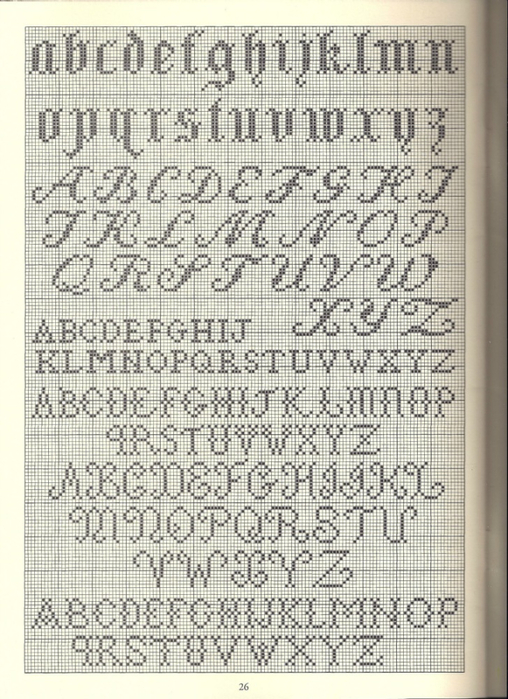 abcdefghijklmn
opqrstuvwxyz
ABCDEFGHI
JKLMNOP
QRSTUVW
XYZ
ABCDEFGHIJ
KLMNOPQRSTUVWXYZ
ABCDEFGHIJKLMNOP
QRSTUVWXYZ
ABCDEFGHIJKL
MNOPQRSTU
VWXYZ
ABCDEFGHIJKLMNOP
QRSTUVWXYZ
26